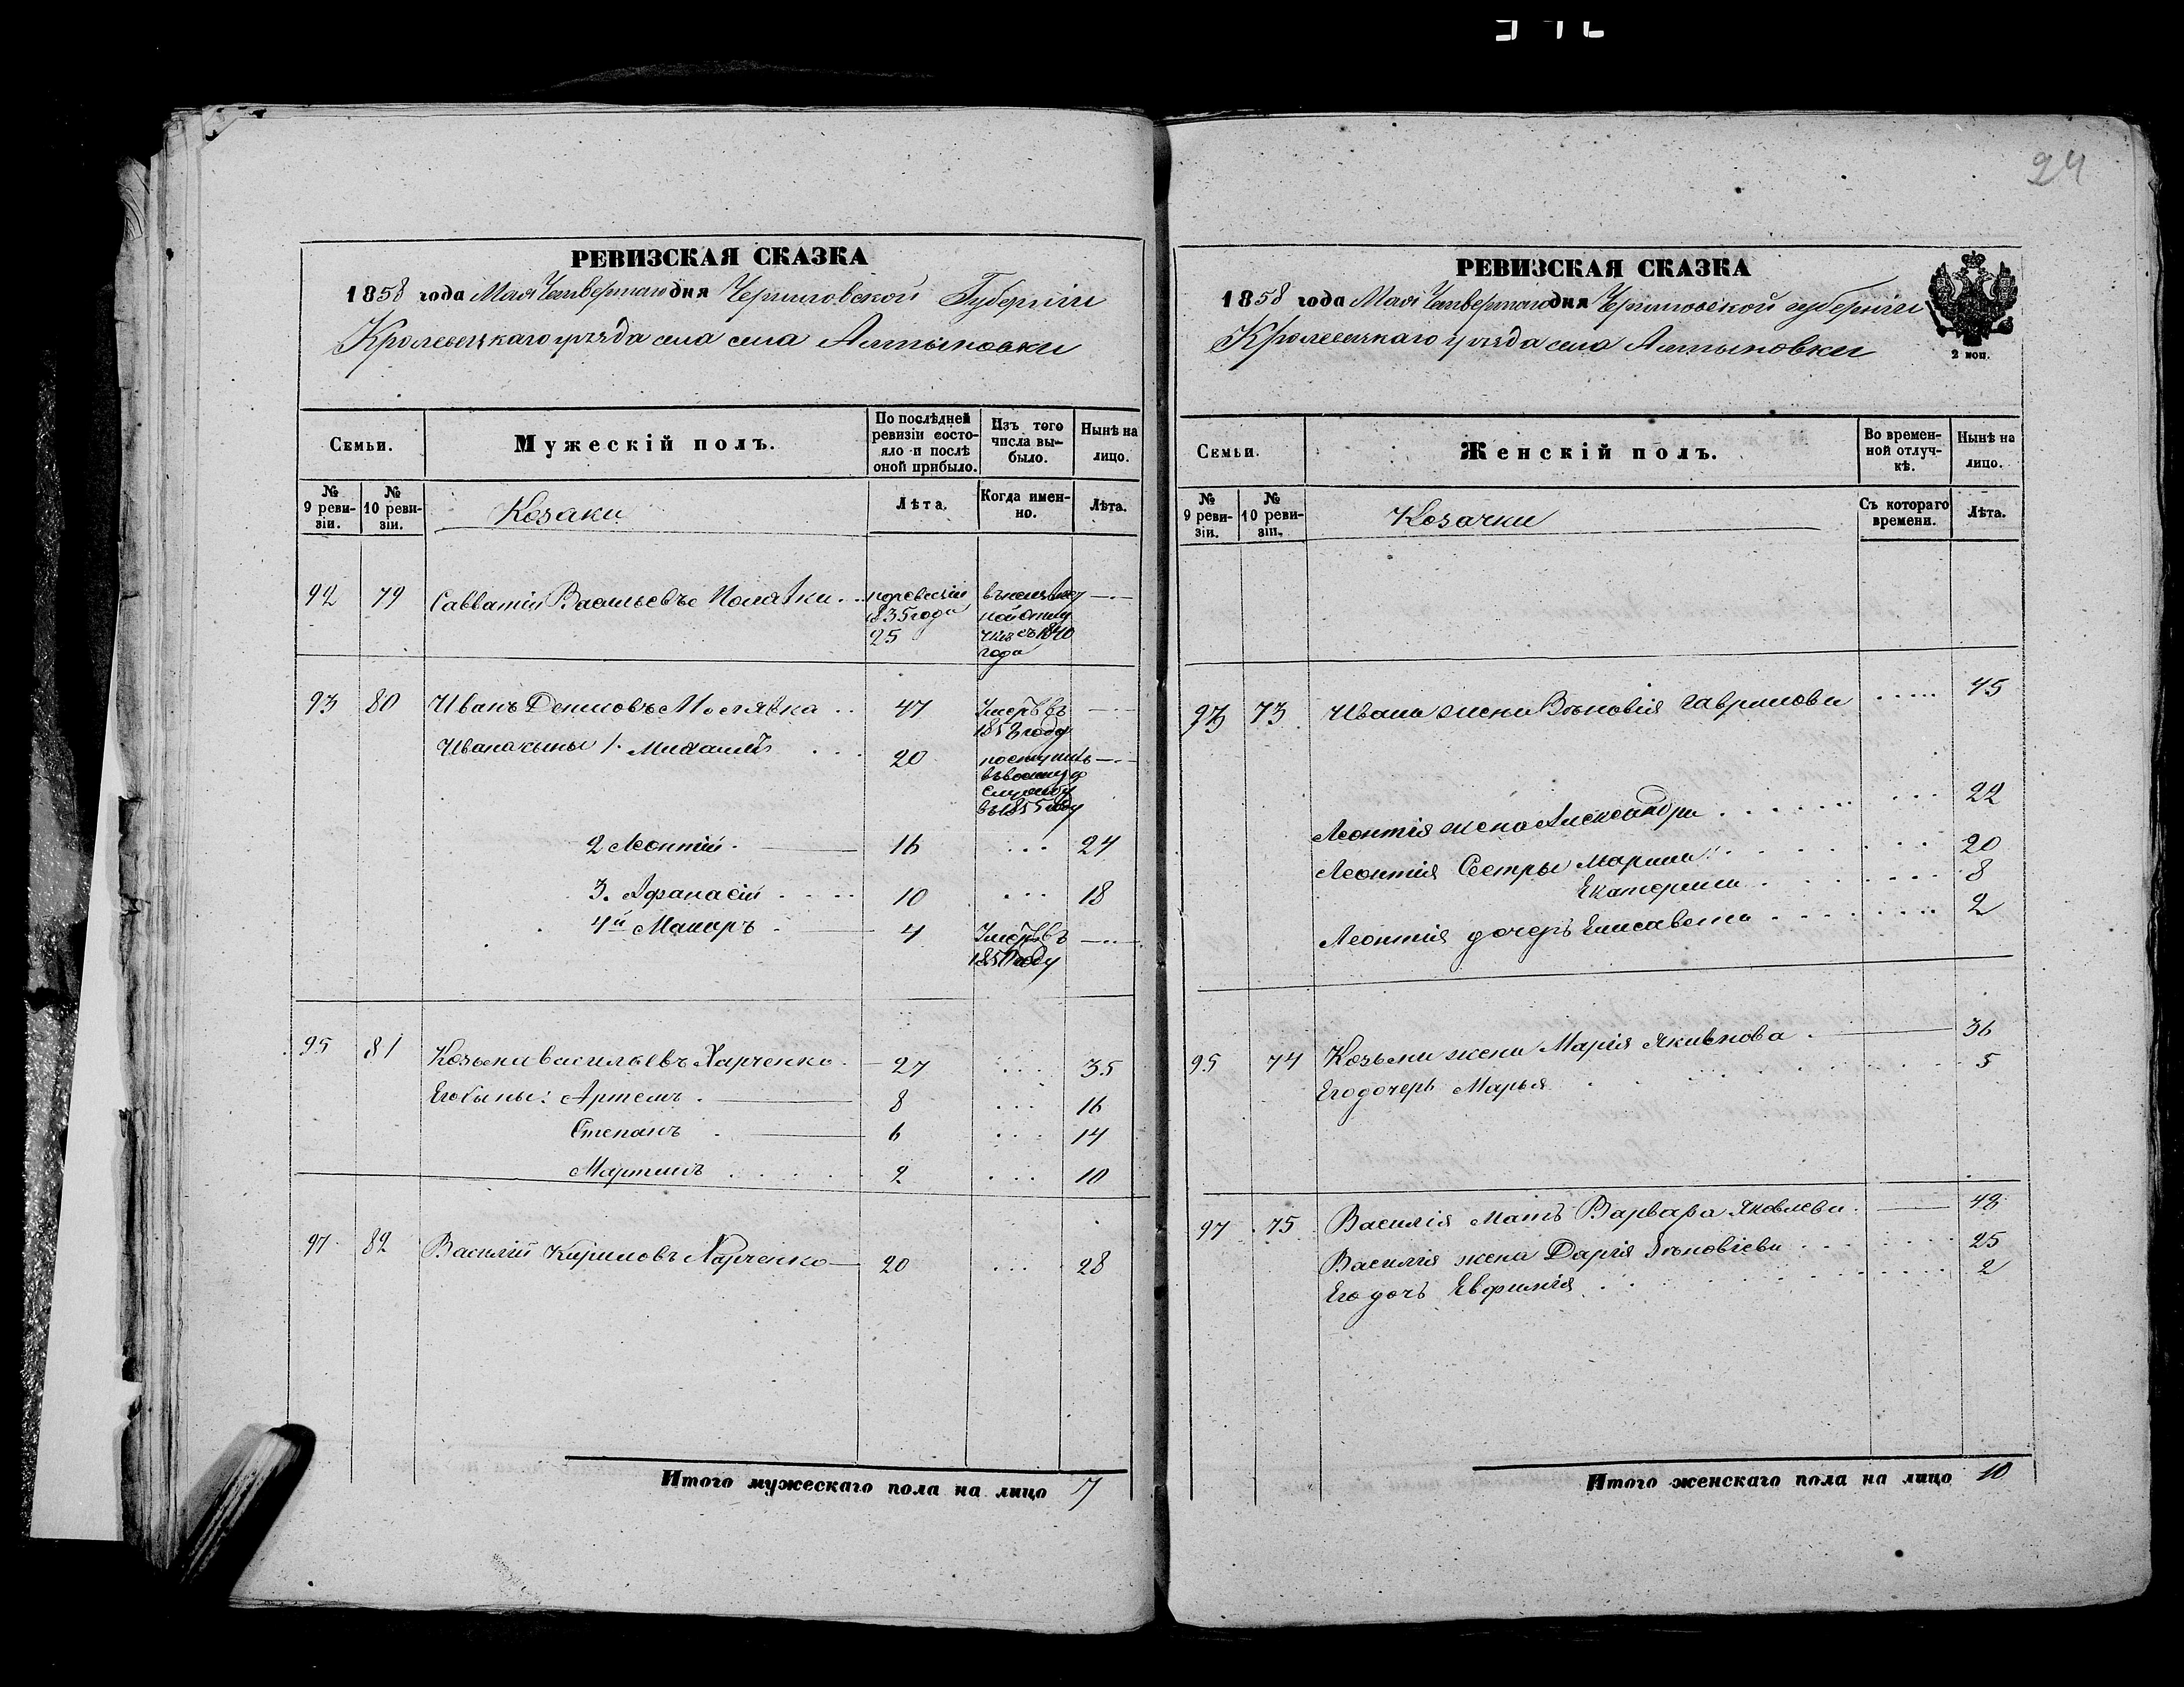 24
РЕВИЗСКАЯ СКАЗКА
1858 года Мая Четвертаго дня Черниговской Губерніи
Кролевецкаго уѣзда села села Алтыновки
Семьи.
Мужескій полъ.
По послѣдней ревизіи состояло и послѣ оной прибыло.
Изъ того числа выбыло.
Нынѣ на лицо.
№ 9 ревизіи.
№ 10 ревизіи.
Козаки
Лѣта.
Когда именно.
Лѣта.
92 79 Савватій Васильевъ
по ревизіи
1835 года
25
съ 1840
года
93 80 Иванъ Денисовъ 47 Умеръ въ
185 году
Ивана сыны 1. Михаилъ 20 поступилъ
въ военную
службу
въ 1855 году
2 Леонтій 16 24
3. Афанасій 10 18
4й Макаръ 4 Умеръ въ
году
95 81 Козьма Васильевъ Харченко 27 35
Его сыны: Артемъ 8 16
Степанъ 6 14
Мартинъ 2 10
97 82 Василій Кириловъ Харченко 20 28
Итого мужескаго пола на лицо 7
РЕВИЗСКАЯ СКАЗКА
1858 года Мая Четвертаго дня Черниговской губерніи
Кролевецкаго уѣзда села Алтыновки
2 коп.
Семьи.
Женскій полъ.
Во временной отлучкѣ.
Нынѣ на лицо.
№ 9 ревизіи.
№ 10 ревизіи.
Козачки
Съ котораго времени.
Лѣта.
93 73 Ивана жена Зѣновія Гаврилова 45
Леонтія жена Александра 22
Леонтія Сестры Марина 20
Екатерина 8
Леонтія дочерь Елисавета 2
95 74 Козьмы жена Марія Якимова 36
Его дочерь Марья 5
97 75 Василія Мать Варвара Яковлева 48
Василія жена Дарія Зѣновіева 25
Его дочь Евфимія 2
Итого женскаго пола на лицо 10